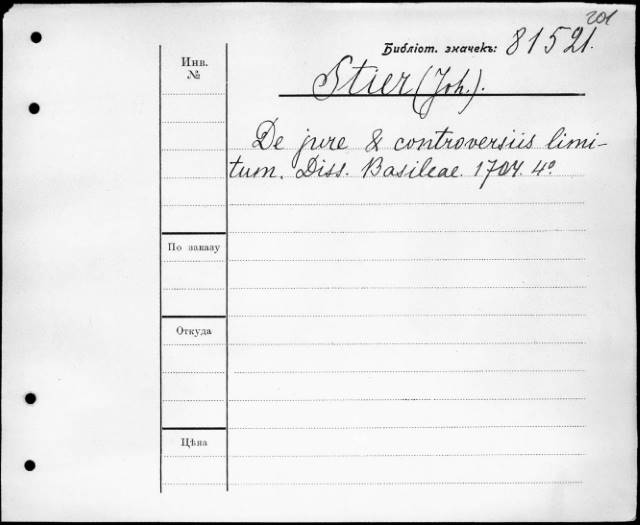 201
Библіот. значекъ: 81521.
Инв.
№
Stier (Joh.).
De jure & controversiis limi-
tum. Diss. Basileae. 1704. 4º
По заказу
Откуда
Цѣна